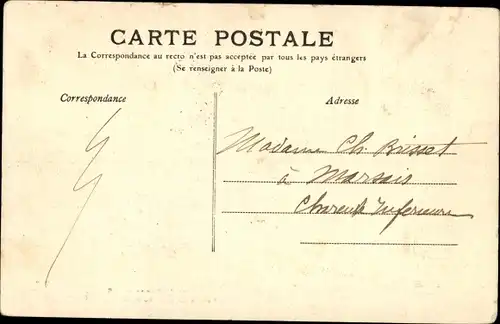 CARTE POSTALE
La Correspondance au recto n'est pas acceptée par tous les pays étrangers
(Se renseigner à la Poste)
Correspondance
Adresse
Madame Ch. Brisset
à Marsais
Charente Inferieure